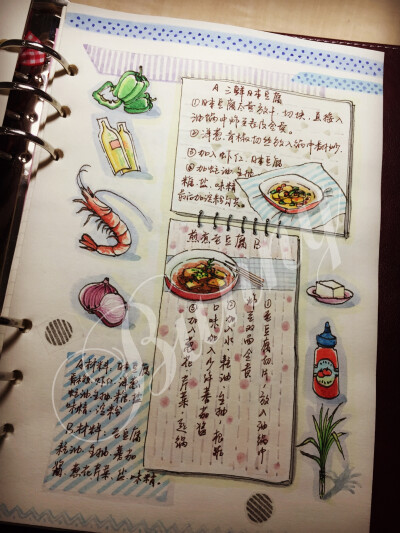 A 三鲜日本豆腐
①日本豆腐去背放干 切块，直接入
油锅中炸至表皮金黄。
②洋葱、青椒切丝放入锅中翻炒，
③加入虾仁、日本豆腐
④加蚝油、生抽
糖、盐、味精
煎煮老豆腐 B
①老豆腐切片，放入油锅中
炸至双面金黄
②加入水、蚝油、生抽、糖、盐
口味加入少许番茄酱
③加入葱花、芹菜、起锅
A材料：日本豆腐
青椒、虾仁、洋葱
蚝油、生抽、糖、盐
味精、淀粉
B材料：老豆腐
蚝油、生抽、番茄
酱、葱花芹菜、盐、味精。
Bunny